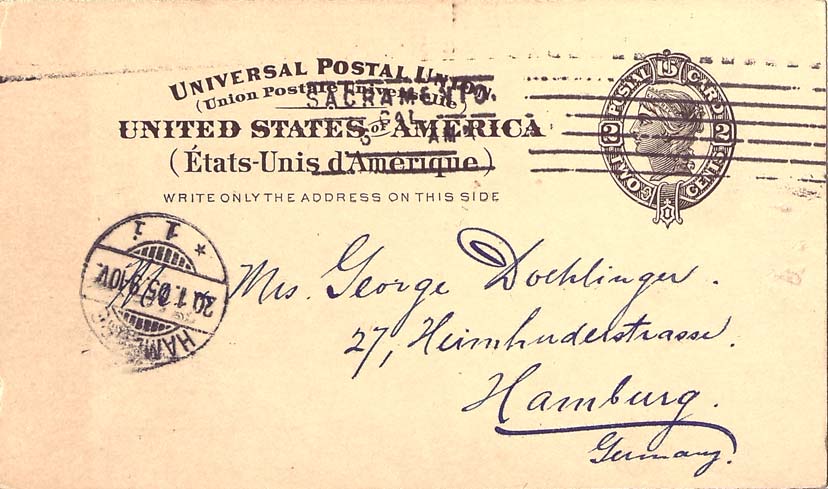 UNIVERSAL POSTAL UNION.
(Union Postale Universelle)
SACRAMENTO,
CAL
AM
UNITED STATES OF AMERICA
(États-Unis d'Amerique)
WRITE ONLY THE ADDRESS ON THIS SIDE
POSTAL CARD
U S
2 2
TWO CENTS
1 i
30.1.05.9-10V.
HAM
Mrs. George Dochlinger.
27, Heimhuderstrasse.
Hamburg.
Germany.